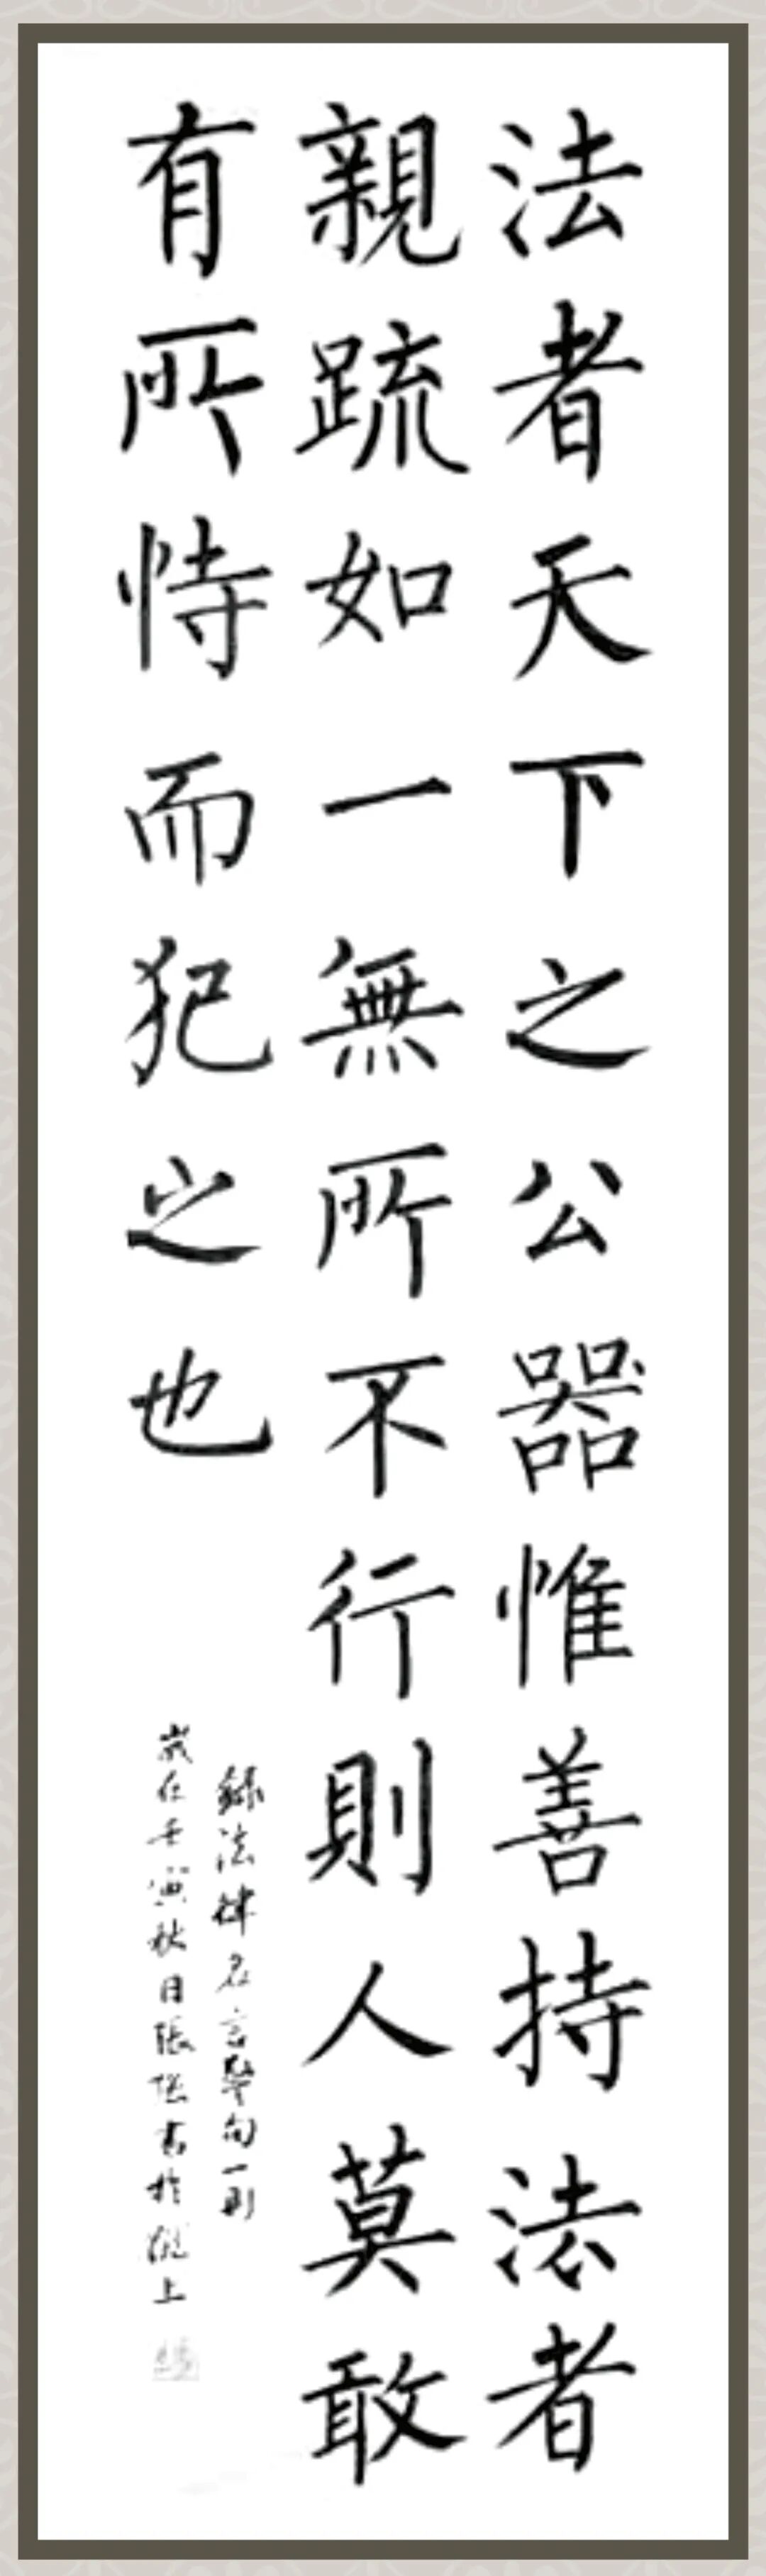 法者天下之公器惟善持法者
親疏如一無所不行則人莫敢
有所恃而犯之也
錄法律名言警句一則
歲在壬寅秋日張書於上